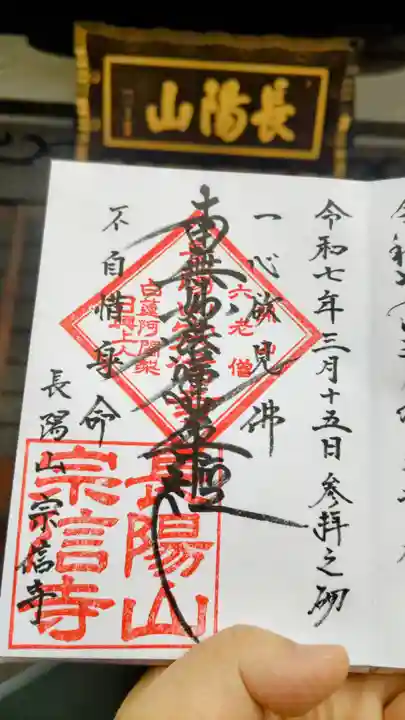 長陽山
令和七年三月十五日参拝之砌
一心欲見佛
六老僧
南無妙法蓮華経
白蓮阿闍梨
日興上人
不自惜身命
長陽山宗信寺
長陽山
宗信寺